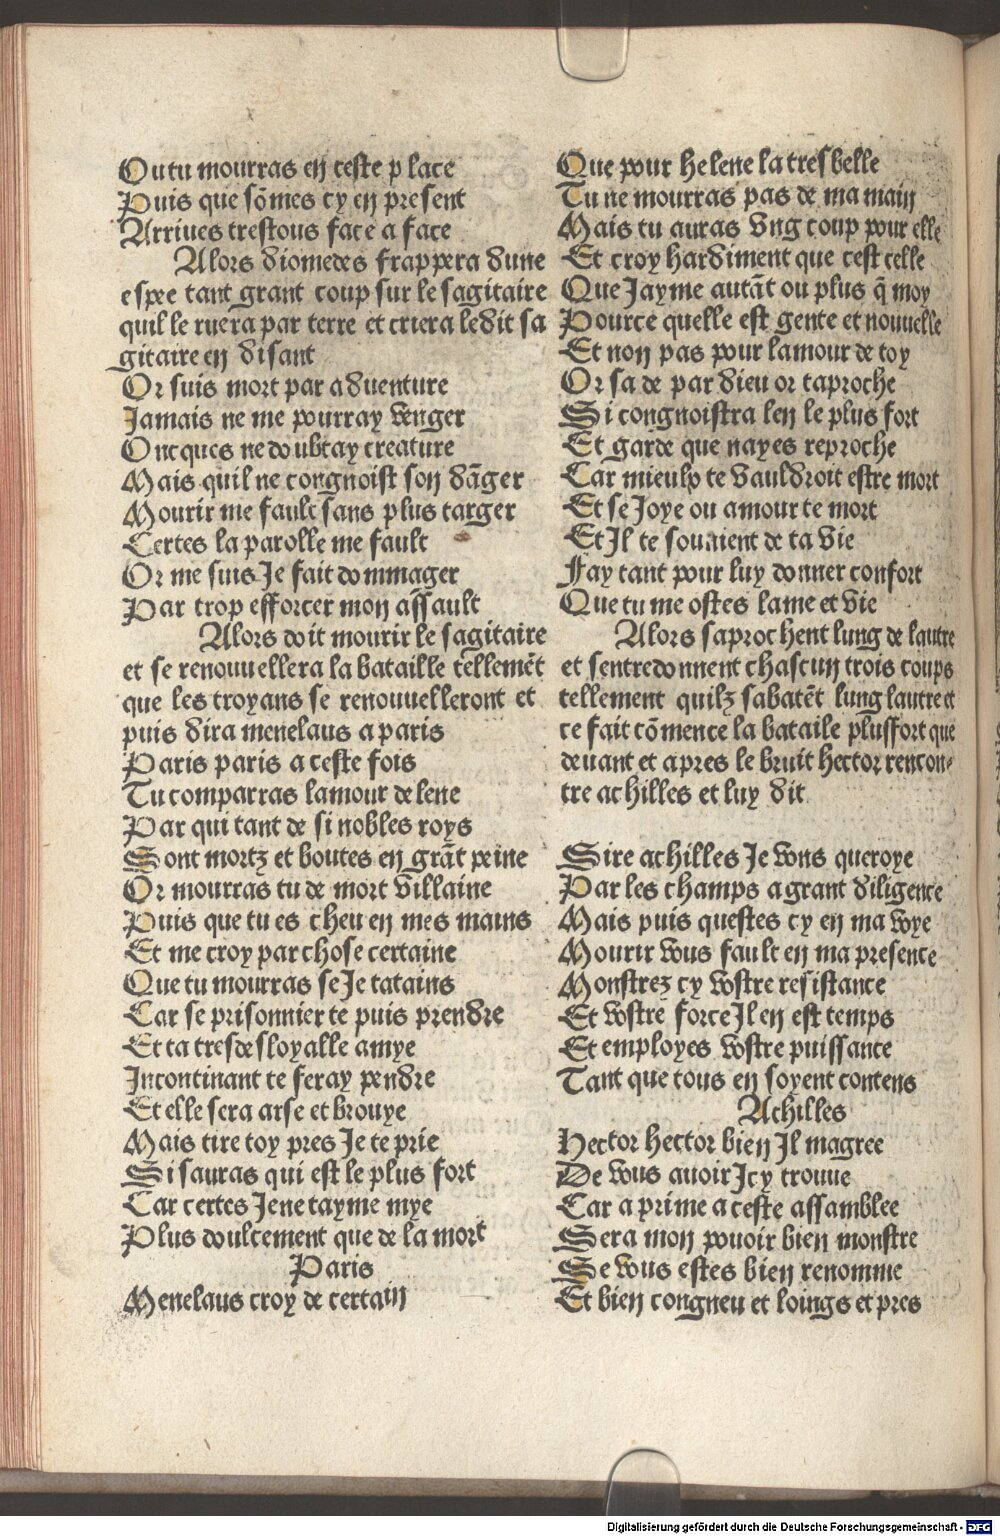 Ou tu mourras en ceste place
Puis que sõmes cy en present
Arriues trestous face a face
Alors diomedes frappera dune
espee tant grant coup sur le sagitaire
quil le ruera par terre et criera ledit sa
gitaire en disant
Or suis mort par aduenture
Jamais ne me pourray venger
Oncques ne doubtay creature
Mais quil ne congnoist son dãger
Mourir me fault sans plus targer
Certes la parolle me fault
Or me suis Je fait dommager
Par trop efforcer mon assault
Alors doit mourir le sagitaire
et se renouuellera la bataille tellemẽt
que les troyans se renouuelleront et
puis dira menelaus a paris
Paris paris a ceste fois
Tu comparras lamour delene
Par qui tant de si nobles roys
Sont mortz et boutes en grãt peine
Or mourras tu de mort villaine
Puis que tu es cheu en mes mains
Et me croy par chose certaine
Que tu mourras se Je tatains
Car se prisonnier te puis prendre
Et ta tresdesloyalle amye
Incontinant te feray pendre
Et elle sera arse et brouye
Mais tire toy pres Je te prie
Si sauras qui est le plus fort
Car certes Je ne tayme mye
Plus doulcement que de la mort
Paris
Menelaus croy de certain
Que pour helene la tresbelle
Tu ne mourras pas de ma main
Mais tu auras vng coup pour elle
Et croy hardiment que cest celle
Que Jayme autãt ou plus q̃ moy
Pource quelle est gente et nouuelle
Et non pas pour lamour de toy
Or sa de par dieu or taproche
Si congnoistra len le plus fort
Et garde que nayes reproche
Car mieulx te vauldroit estre mort
Et se Joye ou amour te mort
Et Il te souuient de ta vie
Fay tant pour luy donner confort
Que tu me ostes lame et vie
Alors saprochent lung de lautre
et sentredonnent chascun trois coups
tellement quilz sabatẽt lung lautre et
ce fait cõmence la bataile plusfort que
deuant et apres le bruit hector rencon-
tre achilles et luy dit
Sire achilles Je vous queroye
Par les champs a grant diligence
Mais puis questes cy en ma voye
Mourir vous fault en ma presence
Monstrez cy vostre resistance
Et vostre force Il en est temps
Et employes vostre puissance
Tant que tous en soyent contens
Achilles
Hector hector bien Il magree
De vous auoir Jcy trouue
Car a prime a ceste assamblee
Sera mon pouoir bien monstre
Se vous estes bien renomme
Et bien congneu et loings et pres
Digitalisierung gefördert durch die Deutsche Forschungsgemeinschaft - DFG